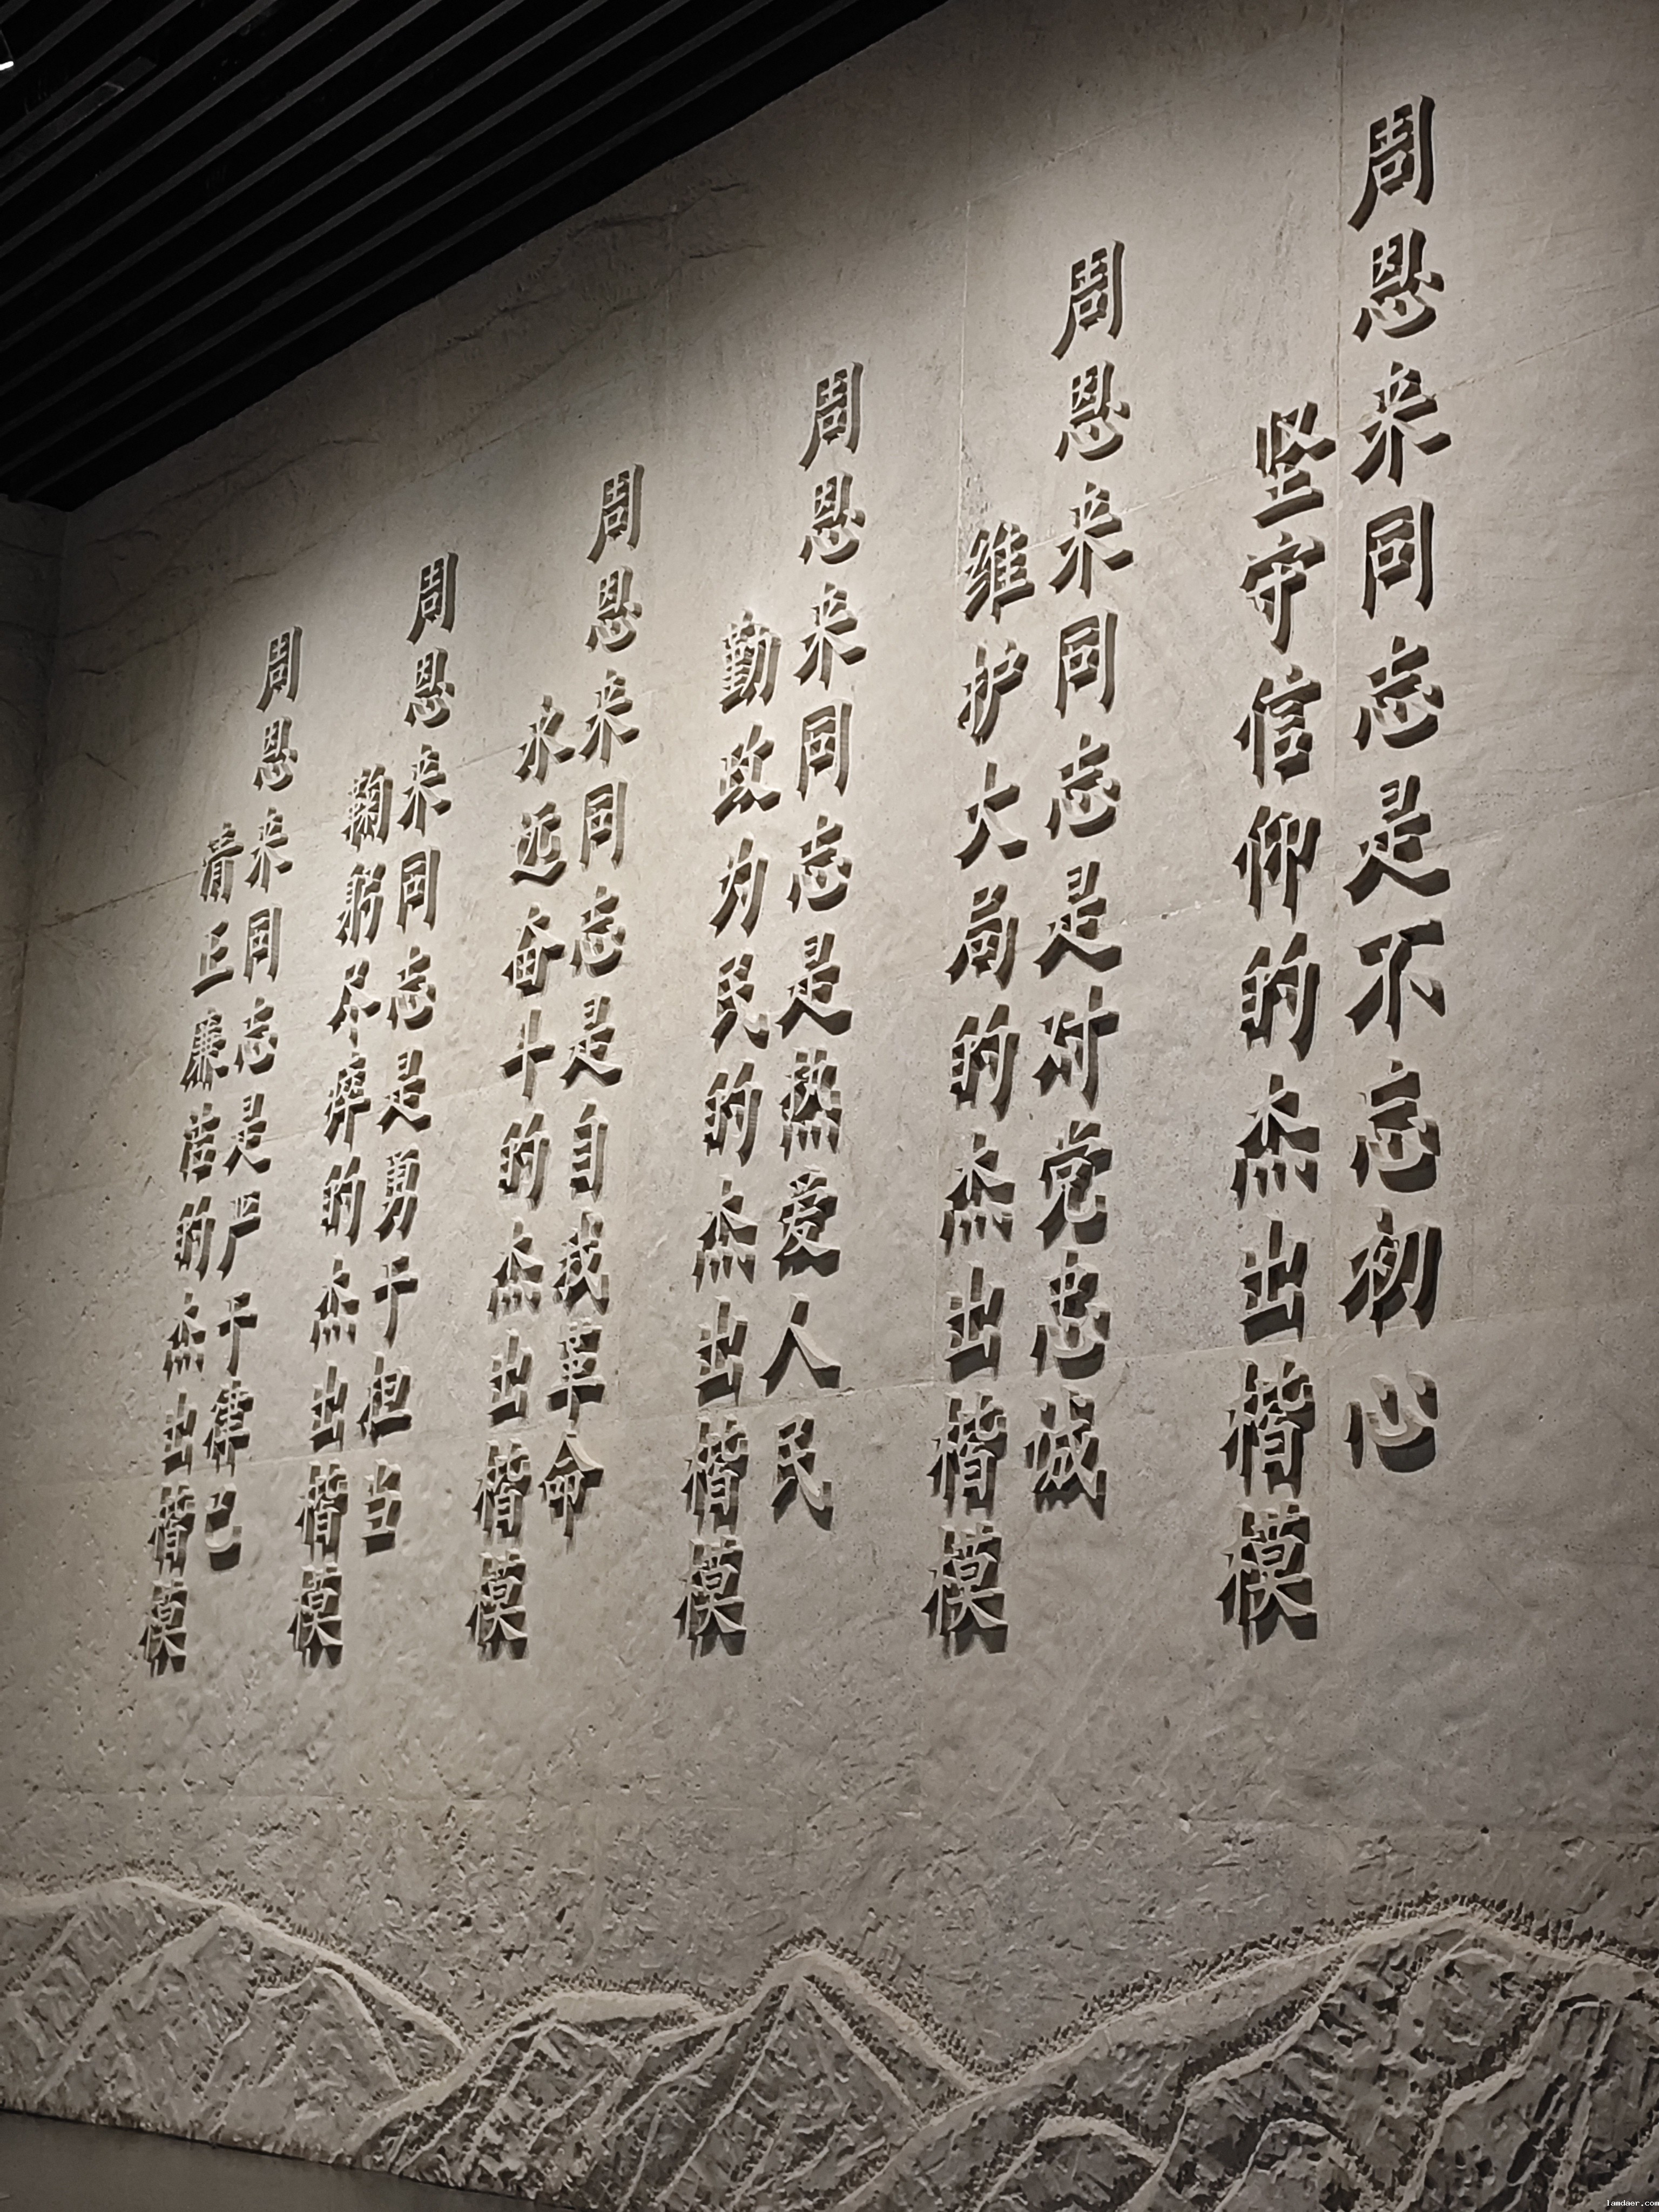 周恩来同志是不忘初心
坚守信仰的杰出楷模
周恩来同志是对党忠诚
维护大局的杰出楷模
周恩来同志是热爱人民
勤政为民的杰出楷模
周恩来同志是自我革命
永远奋斗的杰出楷模
周恩来同志是勇于担当
鞠躬尽瘁的杰出楷模
周恩来同志是严于律己
清正廉洁的杰出楷模
lamdaer.com